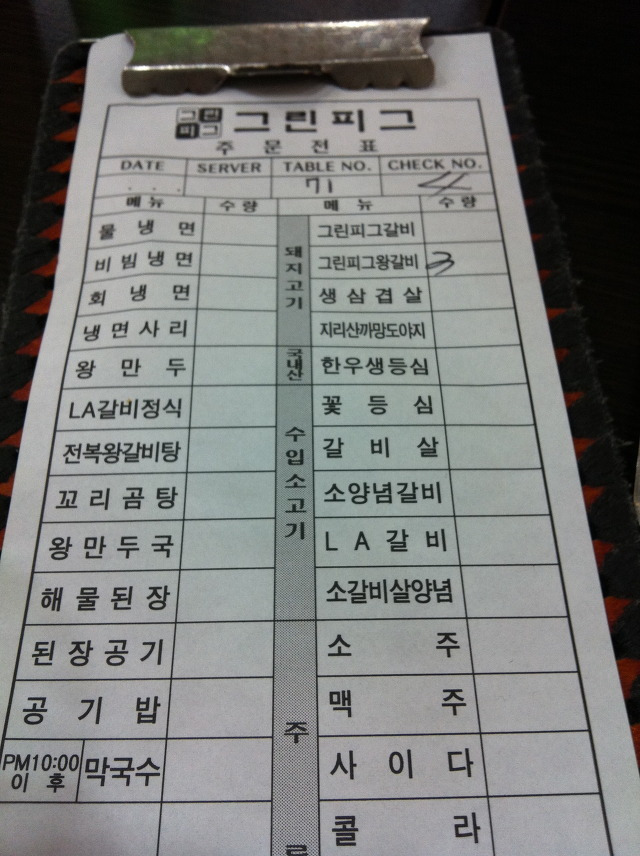 그린
피그 그린피그
주 문 전 표
DATE SERVER TABLE NO. CHECK NO.
. . . 71 4
메뉴 수량 메뉴 수량
물냉면 돼지고기 그린피그갈비
비빔냉면 그린피그왕갈비 3
회냉면 생삼겹살
냉면사리 지리산까망도야지
왕만두 국내산 한우생등심
LA갈비정식 수입소고기 꽃등심
전복왕갈비탕 갈비살
꼬리곰탕 소양념갈비
왕만두국 LA갈비
해물된장 소갈비살양념
된장공기 주류 소주
공기밥 맥주
PM10:00 이후 막국수 사이다
콜라